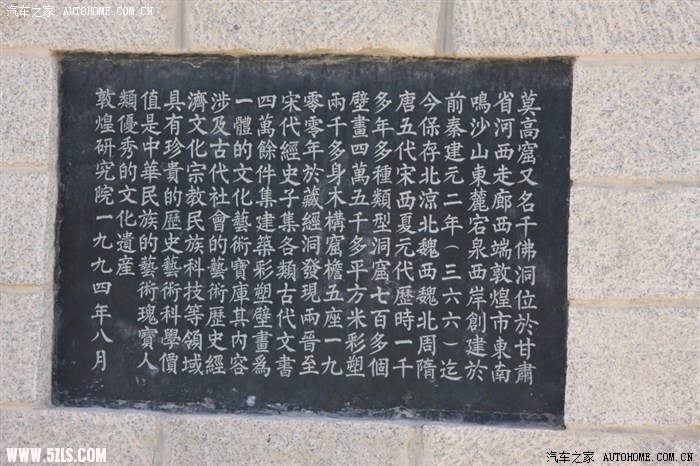 汽车之家 AUTOHOME.COM.CN
莫高窟又名千佛洞位於甘肅
省河西走廊西端敦煌市東南
鳴沙山東麓宕泉西岸創建於
前秦建元二年(三六六)迄
今保存北凉北魏西魏北周隋
唐五代宋西夏元代歷時一千
多年多種類型洞窟七百多個
壁畫四萬五千多平方米彩塑
兩千多身木構窟檐五座一九
零零年於藏經洞發現兩晋至
宋代經史子集各類古代文書
四萬餘件集建築彩塑壁畫爲
一體的文化藝術寶庫其內容
涉及古代社會的藝術歷史經
濟文化宗教民族科技等領域
具有珍貴的歷史藝術科學價
值是中華民族的藝術瑰寶人
類優秀的文化遺産
敦煌研究院一九九四年八月
WWW.52LS.COM
汽车之家 AUTOHOME.COM.CN